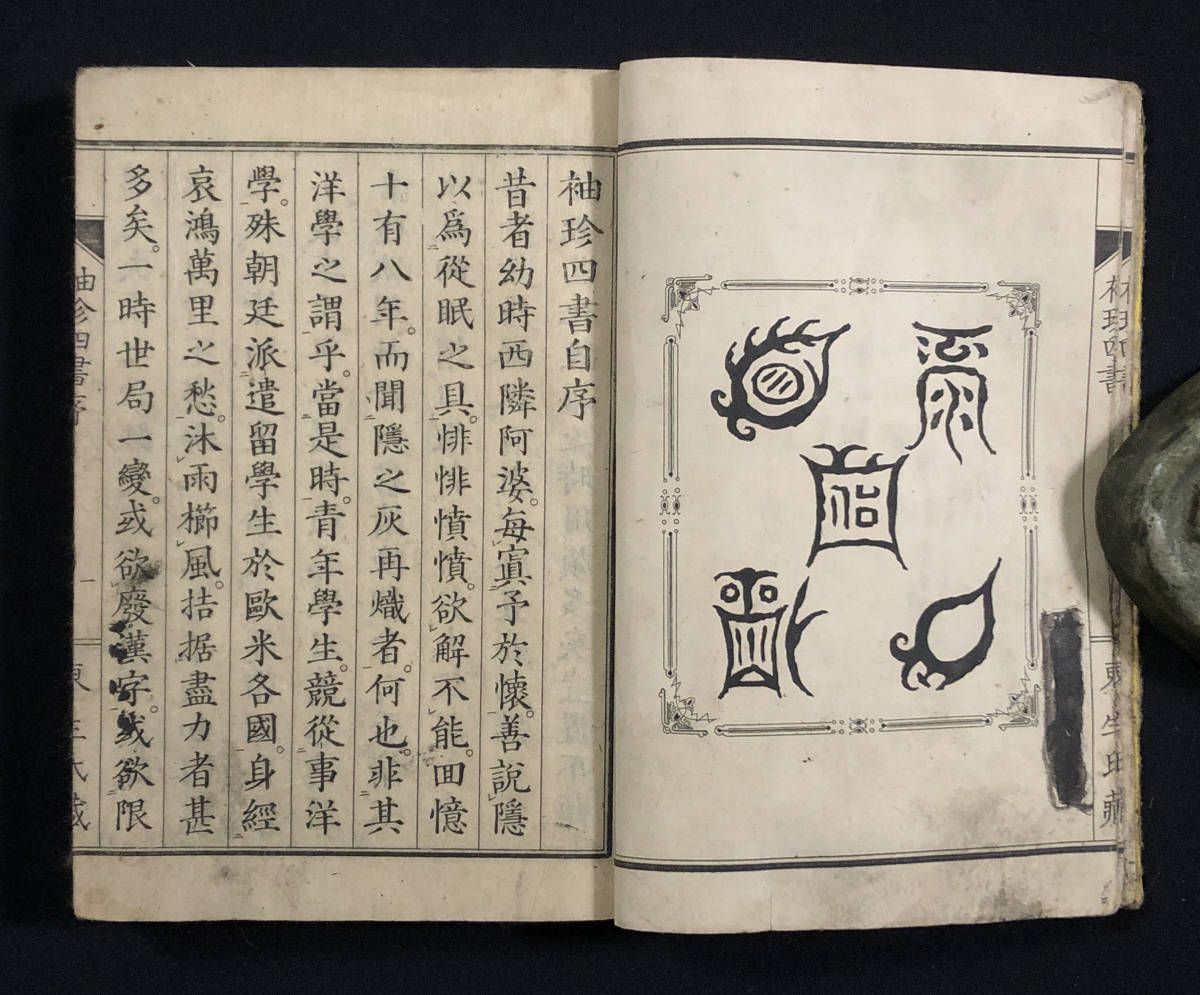 袖珍四書
東生氏藏
袖珍四書自序
昔者幼時西隣阿婆。每寘予於懷。善說隱
以爲從眠之具。悱悱憤憤。欲解不能。囬憶
十有八年。而聞隱之灰再熾者。何也。非其
洋學之謂乎。當是時。青年學生。競從事洋
學。殊朝廷派遣留學生於歐米各國。身經
哀鴻萬里之愁。沐雨櫛風。拮据盡力者甚
多矣。一時世局一變。或欲廢漢字。或欲限
袖珍四書序
一
東生氏藏